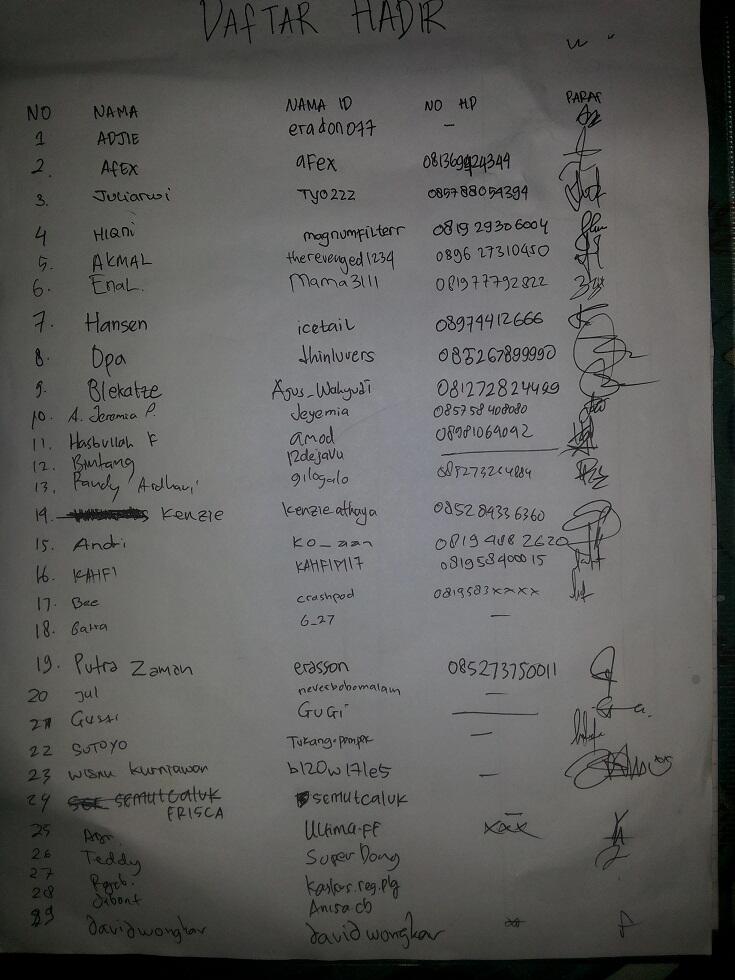 DAFTAR HADIR
NO NAMA NAMA ID NO HP PARAF
1 ADJIE eradon077 -
2. AFEX aFex
3. Juliarwi TYO222 085788054394
4 HIQNI magnumfilterr 0819 29306004
5. AKMAL therevenged1234 0896 27310450
6. EnaL. Mama3111 081977792822
7. Hansen icetail 08974412666
8. Opa thinluvers 085267899990
9. Blekatze Agus_Wahyudi 081272824499
10. A. Jeremia P. Jeyemia 085758408080
11. Hasbullah F amod 08981069092
12. Bintang 12dejavu
13. Randy Ardhavi gilogalo
14. Kenzie kenzieathaya 085289336360
15. Andri ko_aan 0819 488 2620
16. KAHFI KAHFIPM17 081958400015
17. Bee crashpod 0819583xxxx
18. Garra 6_27 -
19. Putra Zaman erasson 085273750011
20 jul neverbobomalam -
21 Gussi GUGI
22 SUTOYO Tukang-pempek -
23 wisnu kurniawan b120w171e5 -
24 SEMUTCALUK SEMUTCALUK
ERISCA
25 Ultima-FF xxx
26 Teddy Super Dong
27 kaskus.reg.plg
28 Anisa.cb
29 davidwongkar davidwongkar